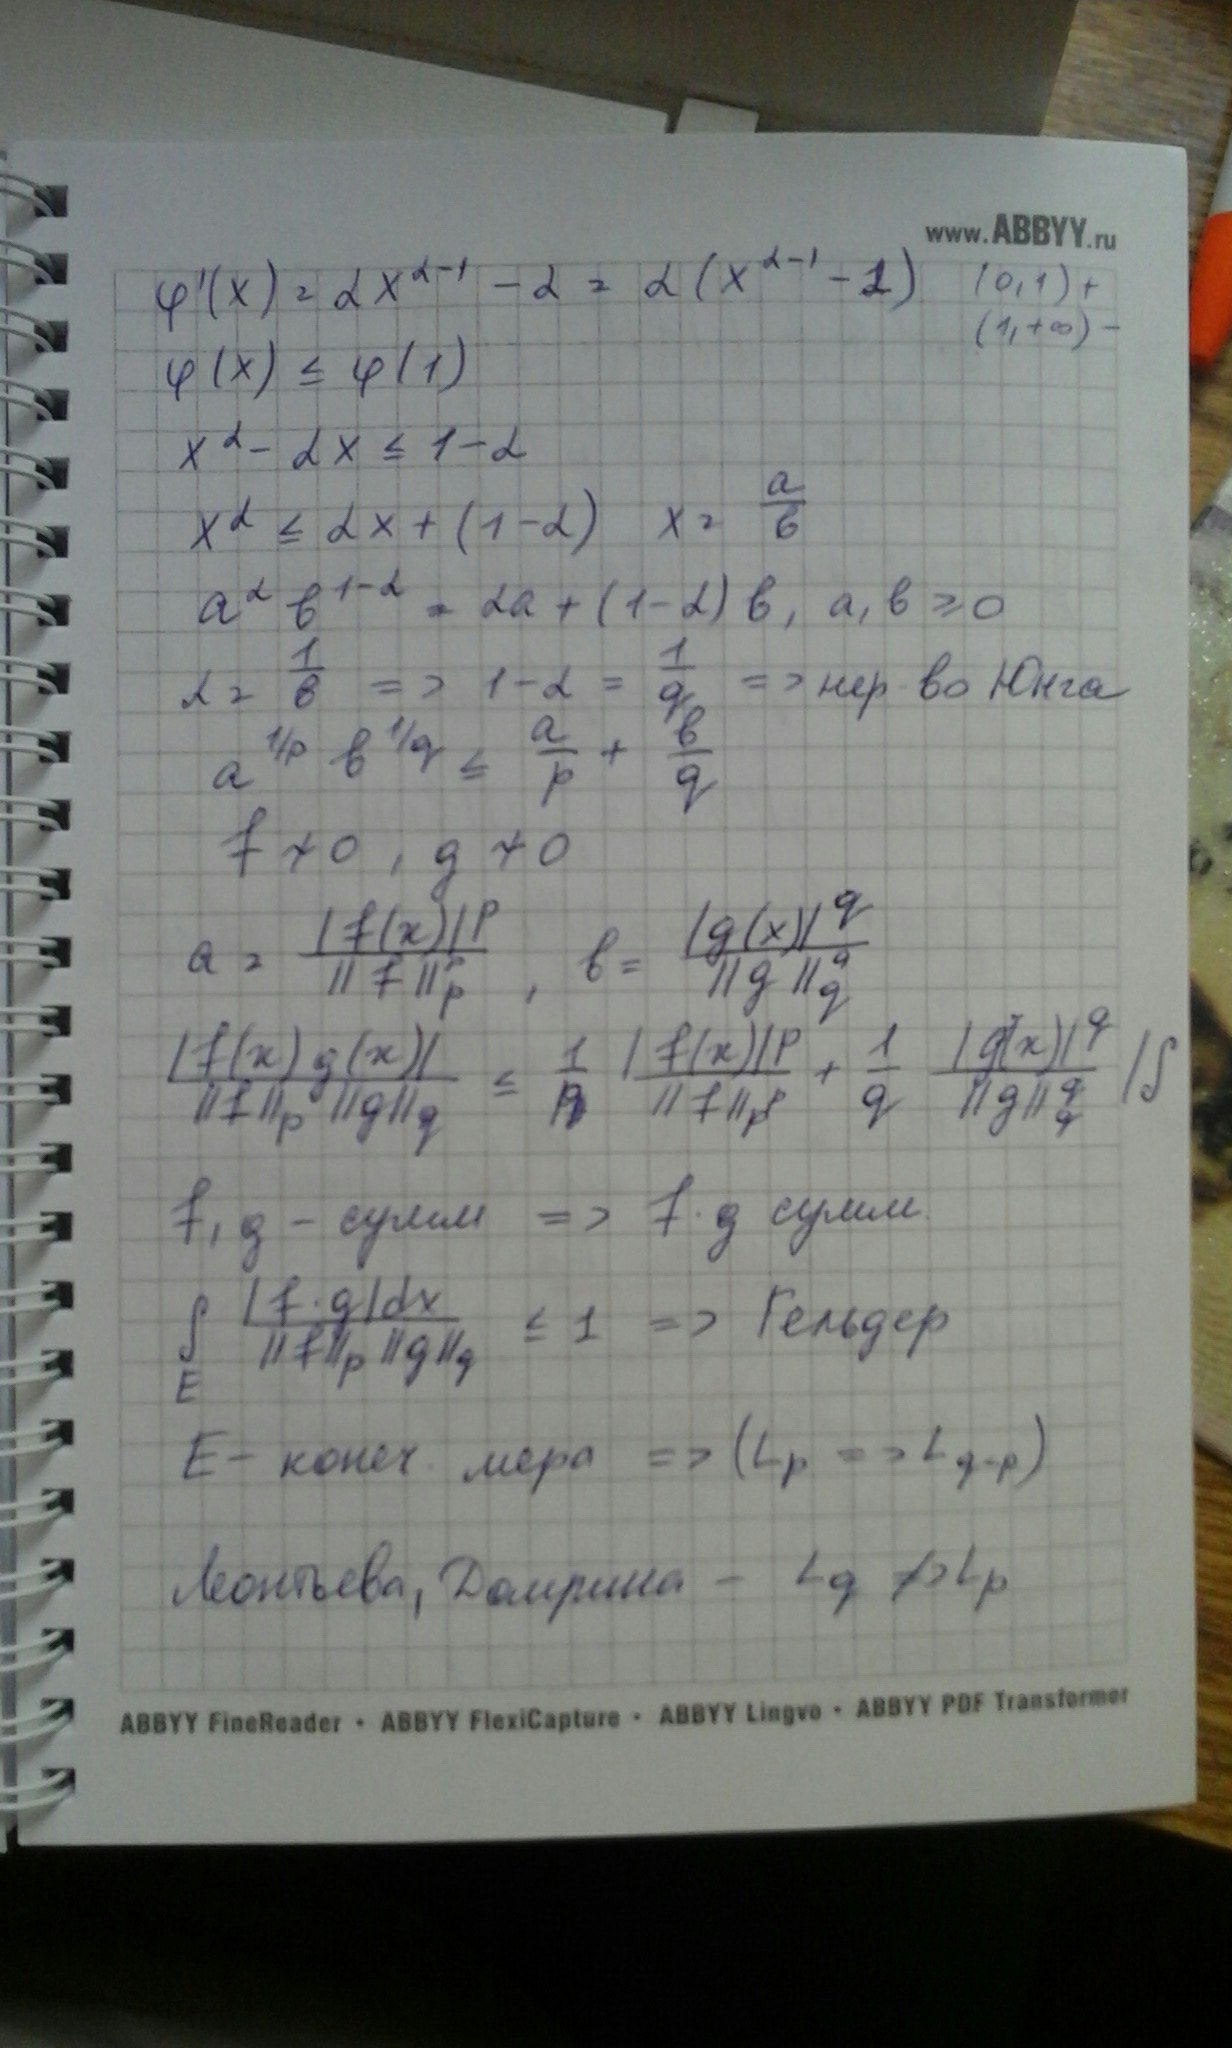 www.ABBYY.ru
φ'(x) = αx^{α-1} - α = α(x^{α-1} - 1) (0,1) +
(1,+∞) -
φ(x) ≤ φ(1)
x^α - αx ≤ 1-α
x^α ≤ αx + (1-α) x = a/b
a^α b^{1-α} = αa + (1-α)b, a, b ≥ 0
α = 1/в => 1-α = 1/q => нер-во Юнга
a^{1/p} b^{1/q} ≤ a/p + b/q
f ≠ 0, g ≠ 0
a = |f(x)|^p / ||f||_p^p, b = |g(x)|^q / ||g||_q^q
|f(x) g(x)| / ||f||_p ||g||_q ≤ 1/p |f(x)|^p / ||f||_p^p + 1/q |g(x)|^q / ||g||_q^q |∫
f, g - сумм => f·g сумм.
∫_E |f·g|dx / ||f||_p ||g||_q ≤ 1 => Гельдер
E - конеч. мера => (L_p => L_{q-p})
Леонтьева, Домрина - L_q ≠> L_p
ABBYY FineReader • ABBYY FlexiCapture • ABBYY Lingvo • ABBYY PDF Transformer